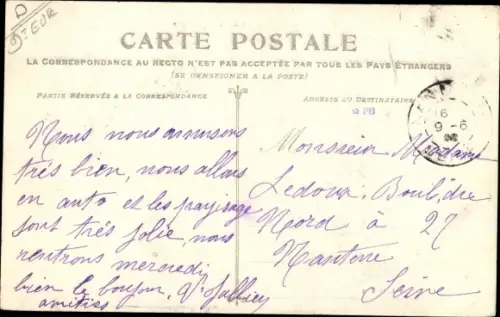 D
CARTE POSTALE
LA CORRESPONDANCE AU RECTO N'EST PAS ACCEPTÉE PAR TOUS LES PAYS ÉTRANGERS
(SE RENSEIGNER A LA POSTE)
PARTIE RÉSERVÉE A LA CORRESPONDANCE
ADRESSE DU DESTINATAIRE
Nous nous amusons
très bien, nous allons
en auto et les paysage
sont très jolie, nous
rentrons mercredi
bien le bonjour,
amitiés
Monsieur Madame
Ledoux Boul. du
Nord à 27
Nanterre
Seine
16
9-6